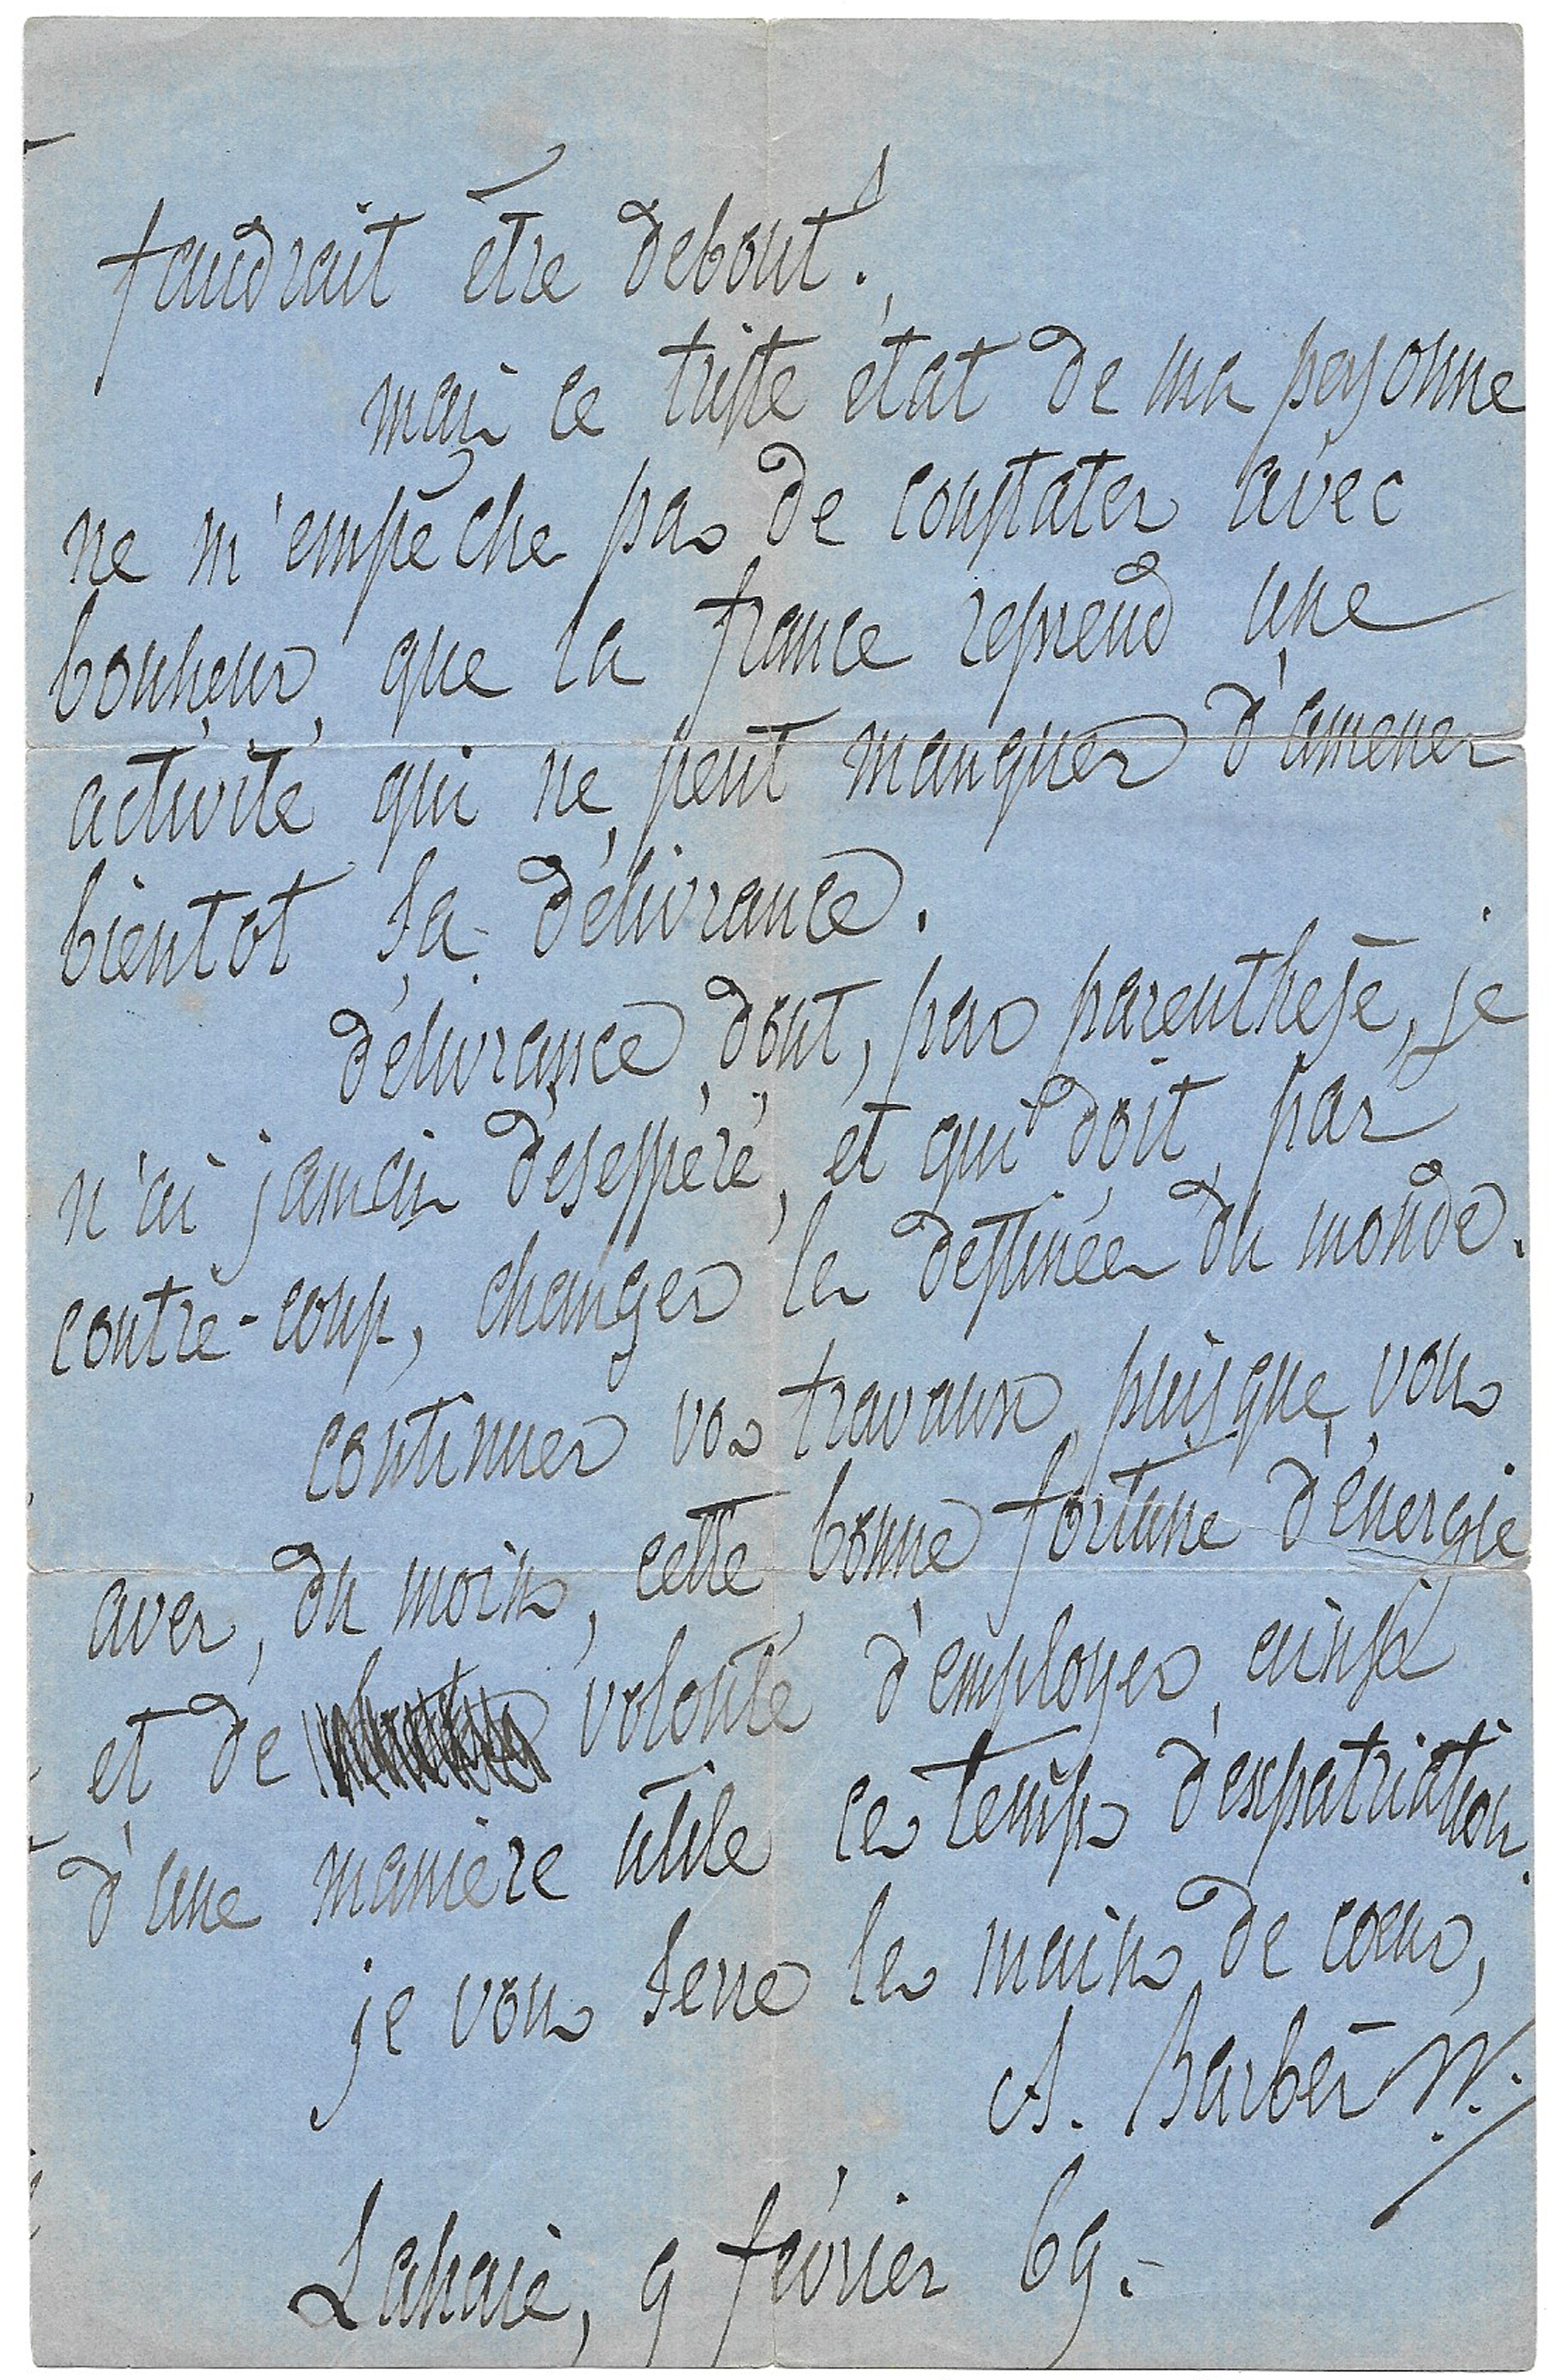 faudrait être debout !
mais ce triste état de ma personne
ne m'empêche pas de constater avec
bonheur que la france reprend une
activité qui ne peut manquer d'amener
bientot sa délivrance.
délivrance dont, par parenthese, je
n'ai jamais désespéré, et qui doit, par
contre-coup, changer les destinées du monde.
continuez vos travaux puisque vous
avez, du moins, cette bonne fortune d'énergie
et de volonté d'employer ainsi
d'une manière utile ces temps d'expatriation.
je vous serre les mains de coeur,
A. Barbès
Lahaie, 9 février 69.-